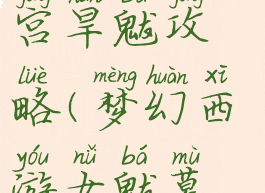 宫旱魃攻
lüè mèng huàn xī
略(梦幻西
yóu nǚ bá mù
游女魃墓